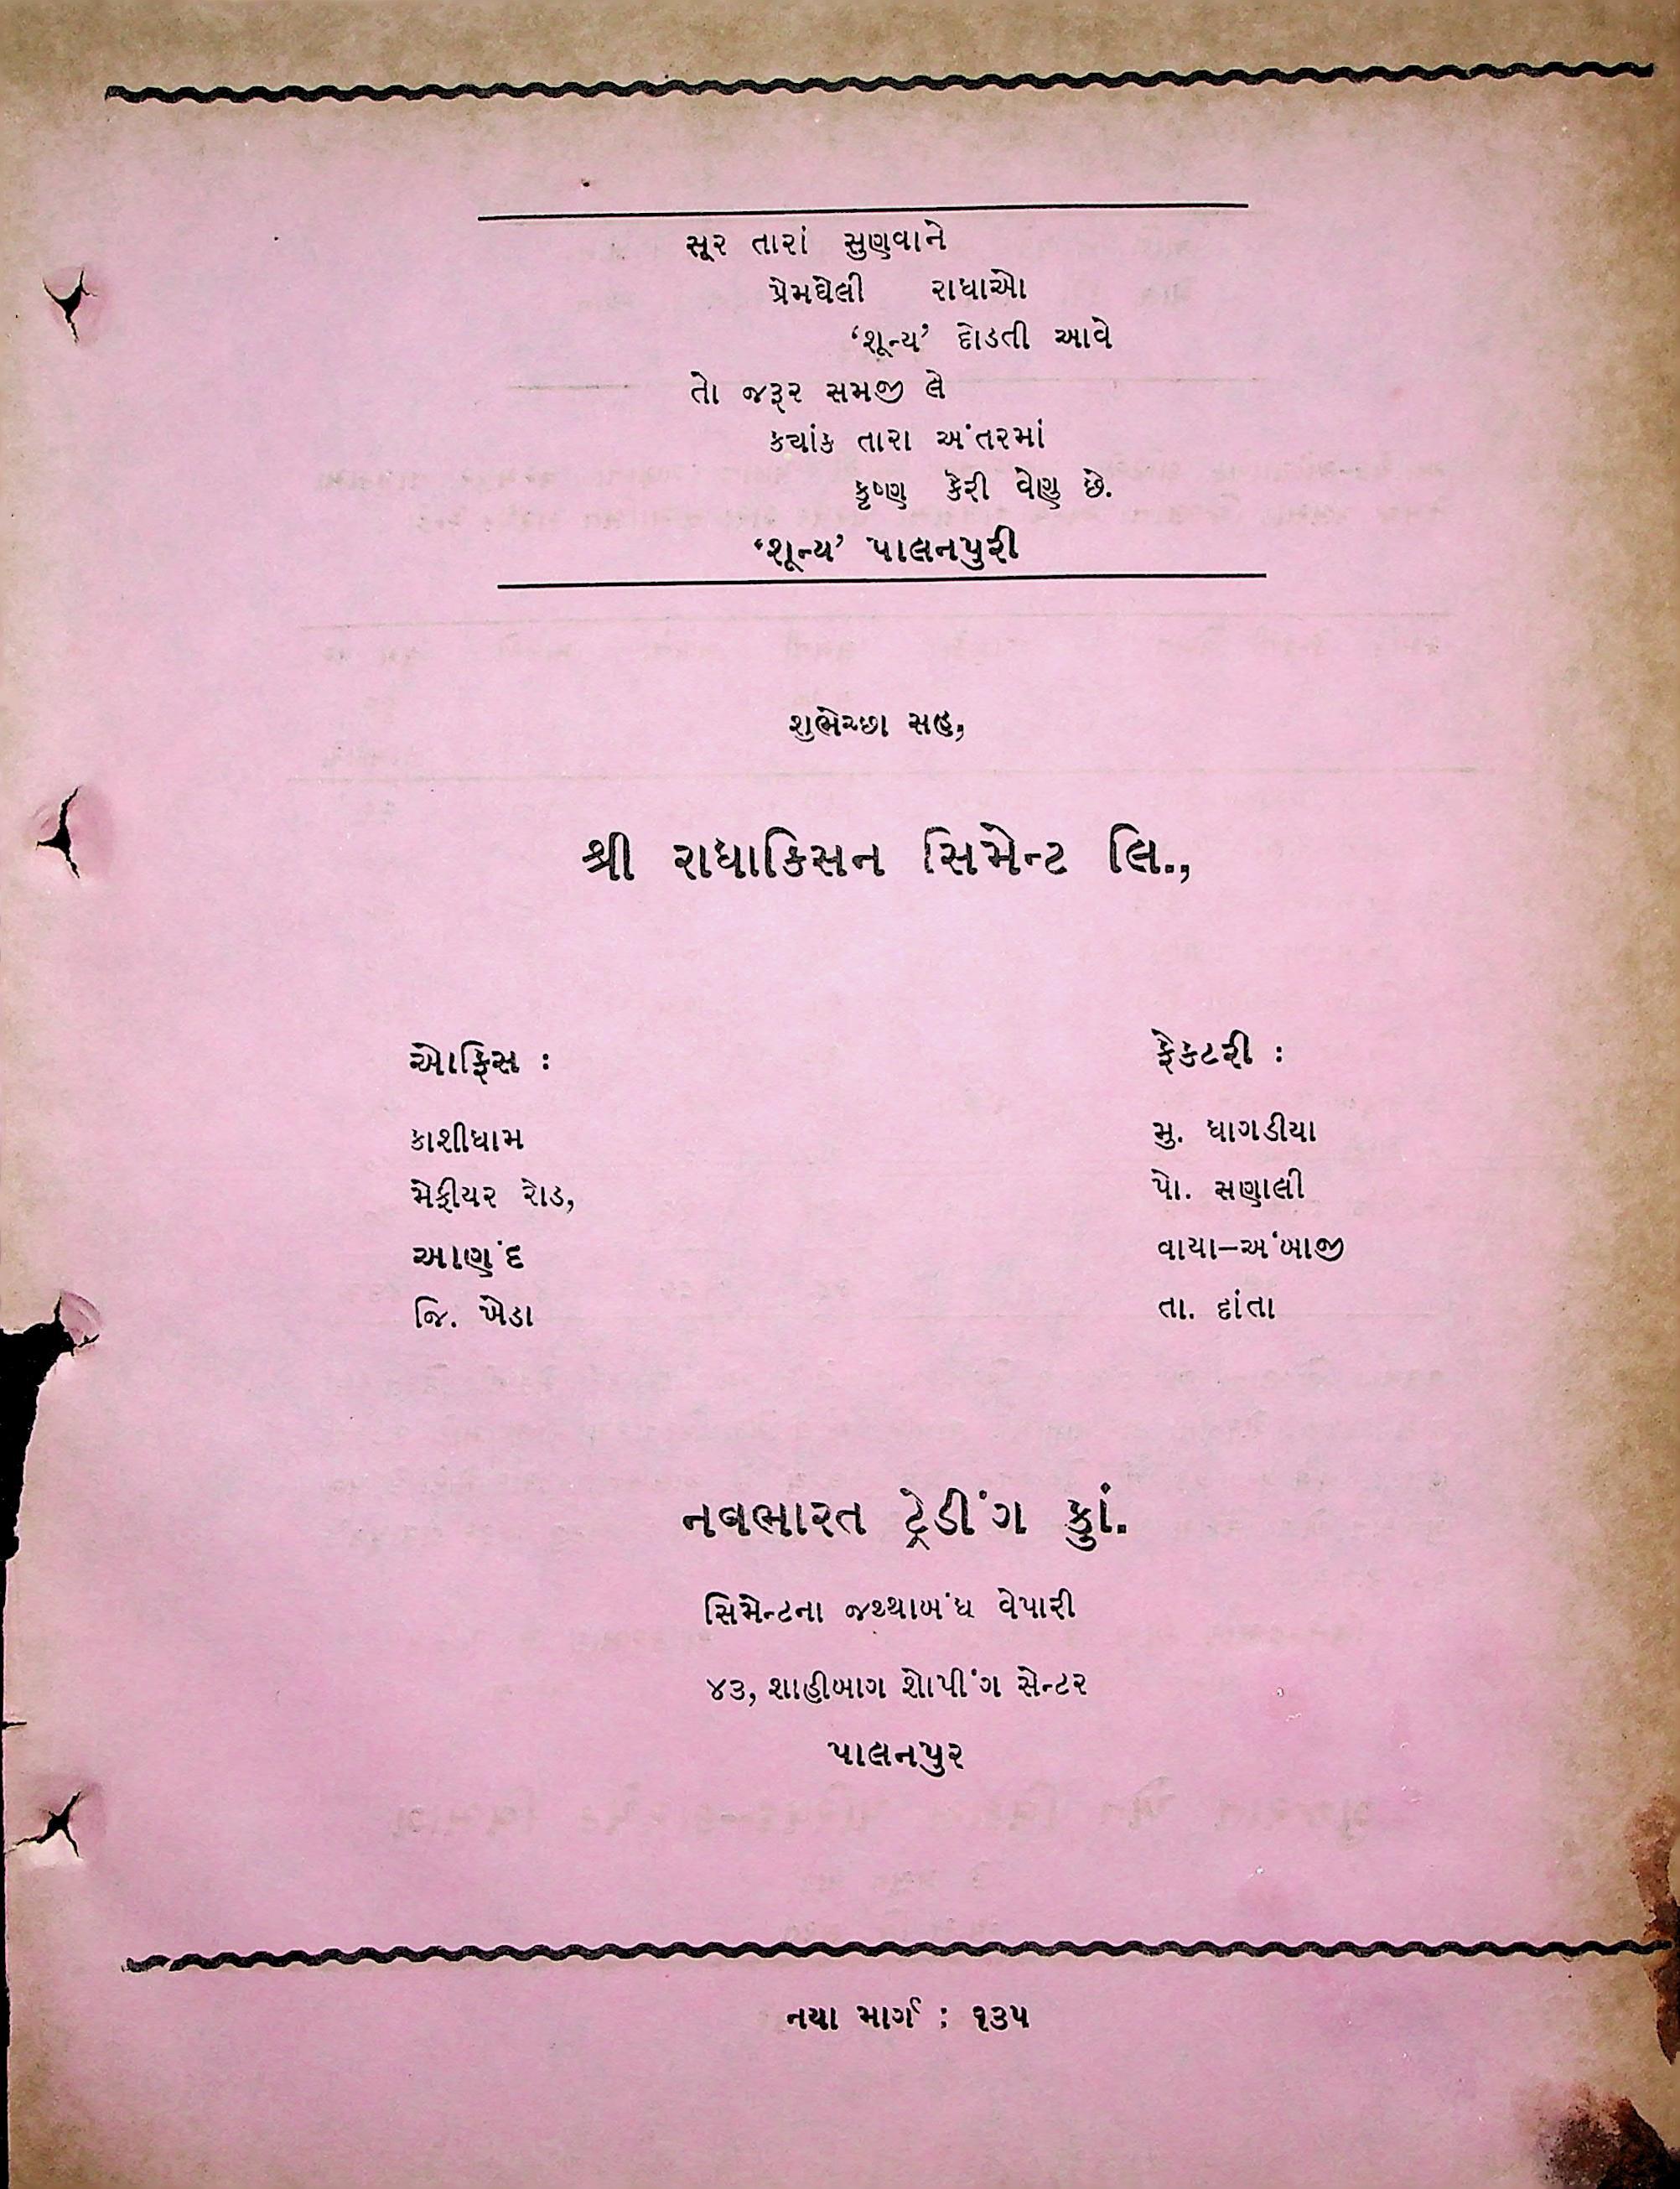 સૂર તારાં સુણવાને
પ્રેમઘેલી રાધાઓ
‘શૂન્ય’ દોડતી આવે
તો જરૂર સમજી લે
કયાંક તારા અંતરમાં
કૃષ્ણ કેરી વેણુ છે.
‘શૂન્ય’ પાલનપુરી
શુભેચ્છા સહ,
શ્રી રાધાકિસન સિમેન્ટ લિ.,
ઓફિસ :
કાશીધામ
મેફીયર રોડ,
આણંદ
જિ. ખેડા
ફેકટરી :
મુ. ધાગડીયા
પો. સણાલી
વાયા–અંબાજી
તા. દાંતા
નવભારત ટ્રેડીંગ કુાં.
સિમેન્ટના જથ્થાબંધ વેપારી
૪૩, શાહીબાગ શોપીંગ સેન્ટર
પાલનપુર
નયા માર્ગ : ૧૩૫